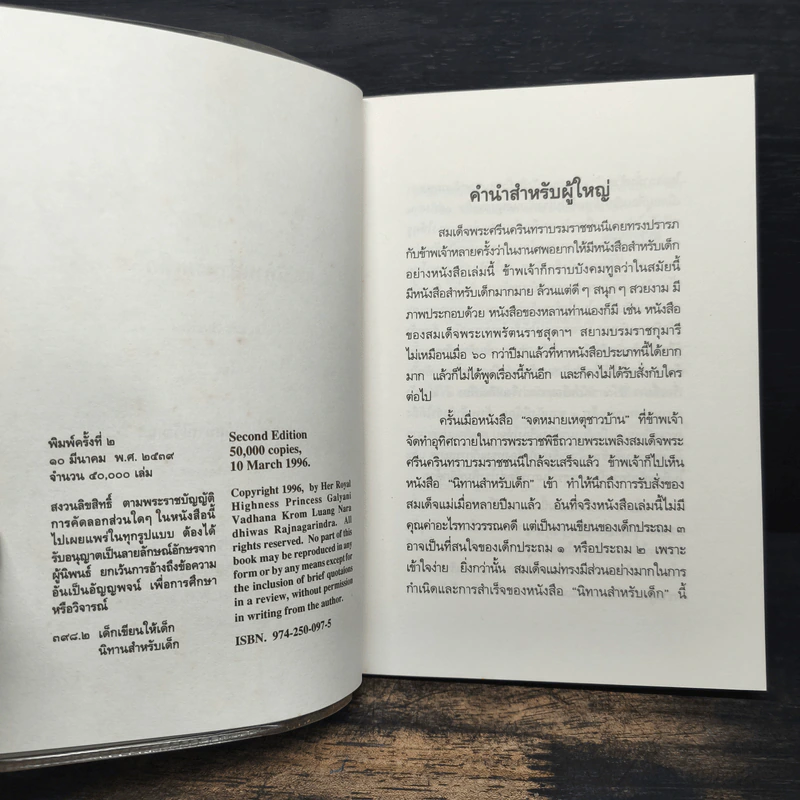 พิมพ์ครั้งที่ ๒
๑๐ มีนาคม พ.ศ. ๒๕๓๙
จำนวน ๕๐,๐๐๐ เล่ม
สงวนลิขสิทธิ์ ตามพระราชบัญญัติ
การคัดลอกส่วนใดๆ ในหนังสือนี้
ไปเผยแพร่ในทุกรูปแบบ ต้องได้
รับอนุญาตเป็นลายลักษณ์อักษรจาก
ผู้นิพนธ์ ยกเว้นการอ้างถึงข้อความ
อันเป็นอัญญพจน์ เพื่อการศึกษา
หรือวิจารณ์
๓๙๘.๒ เด็กเขียนให้เด็ก
นิทานสำหรับเด็ก
Second Edition
50,000 copies,
10 March 1996.
Copyright 1996, by Her Royal
Highness Princess Galyani
Vadhana Krom Luang Nara
dhiwas Rajnagarindra. All
rights reserved. No part of this
book may be reproduced in any
form or by any means except for
the inclusion of brief quotaions
in a review, without permission
in writing from the author.
ISBN. 974-250-097-5
คำนำสำหรับผู้ใหญ่
สมเด็จพระศรีนครินทราบรมราชชนนีเคยทรงปรารภ
กับข้าพเจ้าหลายครั้งว่าในงานศพอยากให้มีหนังสือสำหรับเด็ก
อย่างหนังสือเล่มนี้ ข้าพเจ้าก็กราบบังคมทูลว่าในสมัยนี้
มีหนังสือสำหรับเด็กมากมาย ล้วนแต่ดี ๆ สนุก ๆ สวยงาม มี
ภาพประกอบด้วย หนังสือของหลานท่านเองก็มี เช่น หนังสือ
ของสมเด็จพระเทพรัตนราชสุดาฯ สยามบรมราชกุมารี
ไม่เหมือนเมื่อ ๖๐ กว่าปีมาแล้วที่หาหนังสือประเภทนี้ได้ยาก
มาก แล้วก็ไม่ได้พูดเรื่องนี้กันอีก และก็คงไม่ได้รับสั่งกับใคร
ต่อไป
ครั้นเมื่อหนังสือ “จดหมายเหตุชาวบ้าน” ที่ข้าพเจ้า
จัดทำอุทิศถวายในการพระราชพิธีถวายพระเพลิงสมเด็จพระ
ศรีนครินทราบรมราชชนนีใกล้จะเสร็จแล้ว ข้าพเจ้าก็ไปเห็น
หนังสือ “นิทานสำหรับเด็ก” เข้า ทำให้นึกถึงการรับสั่งของ
สมเด็จแม่เมื่อหลายปีมาแล้ว อันที่จริงหนังสือเล่มนี้ไม่มี
คุณค่าอะไรทางวรรณคดี แต่เป็นงานเขียนของเด็กประถม ๓
อาจเป็นที่สนใจของเด็กประถม ๑ หรือประถม ๒ เพราะ
เข้าใจง่าย ยิ่งกว่านั้น สมเด็จแม่ทรงมีส่วนอย่างมากในการ
กำเนิดและการสำเร็จของหนังสือ “นิทานสำหรับเด็ก” นี้